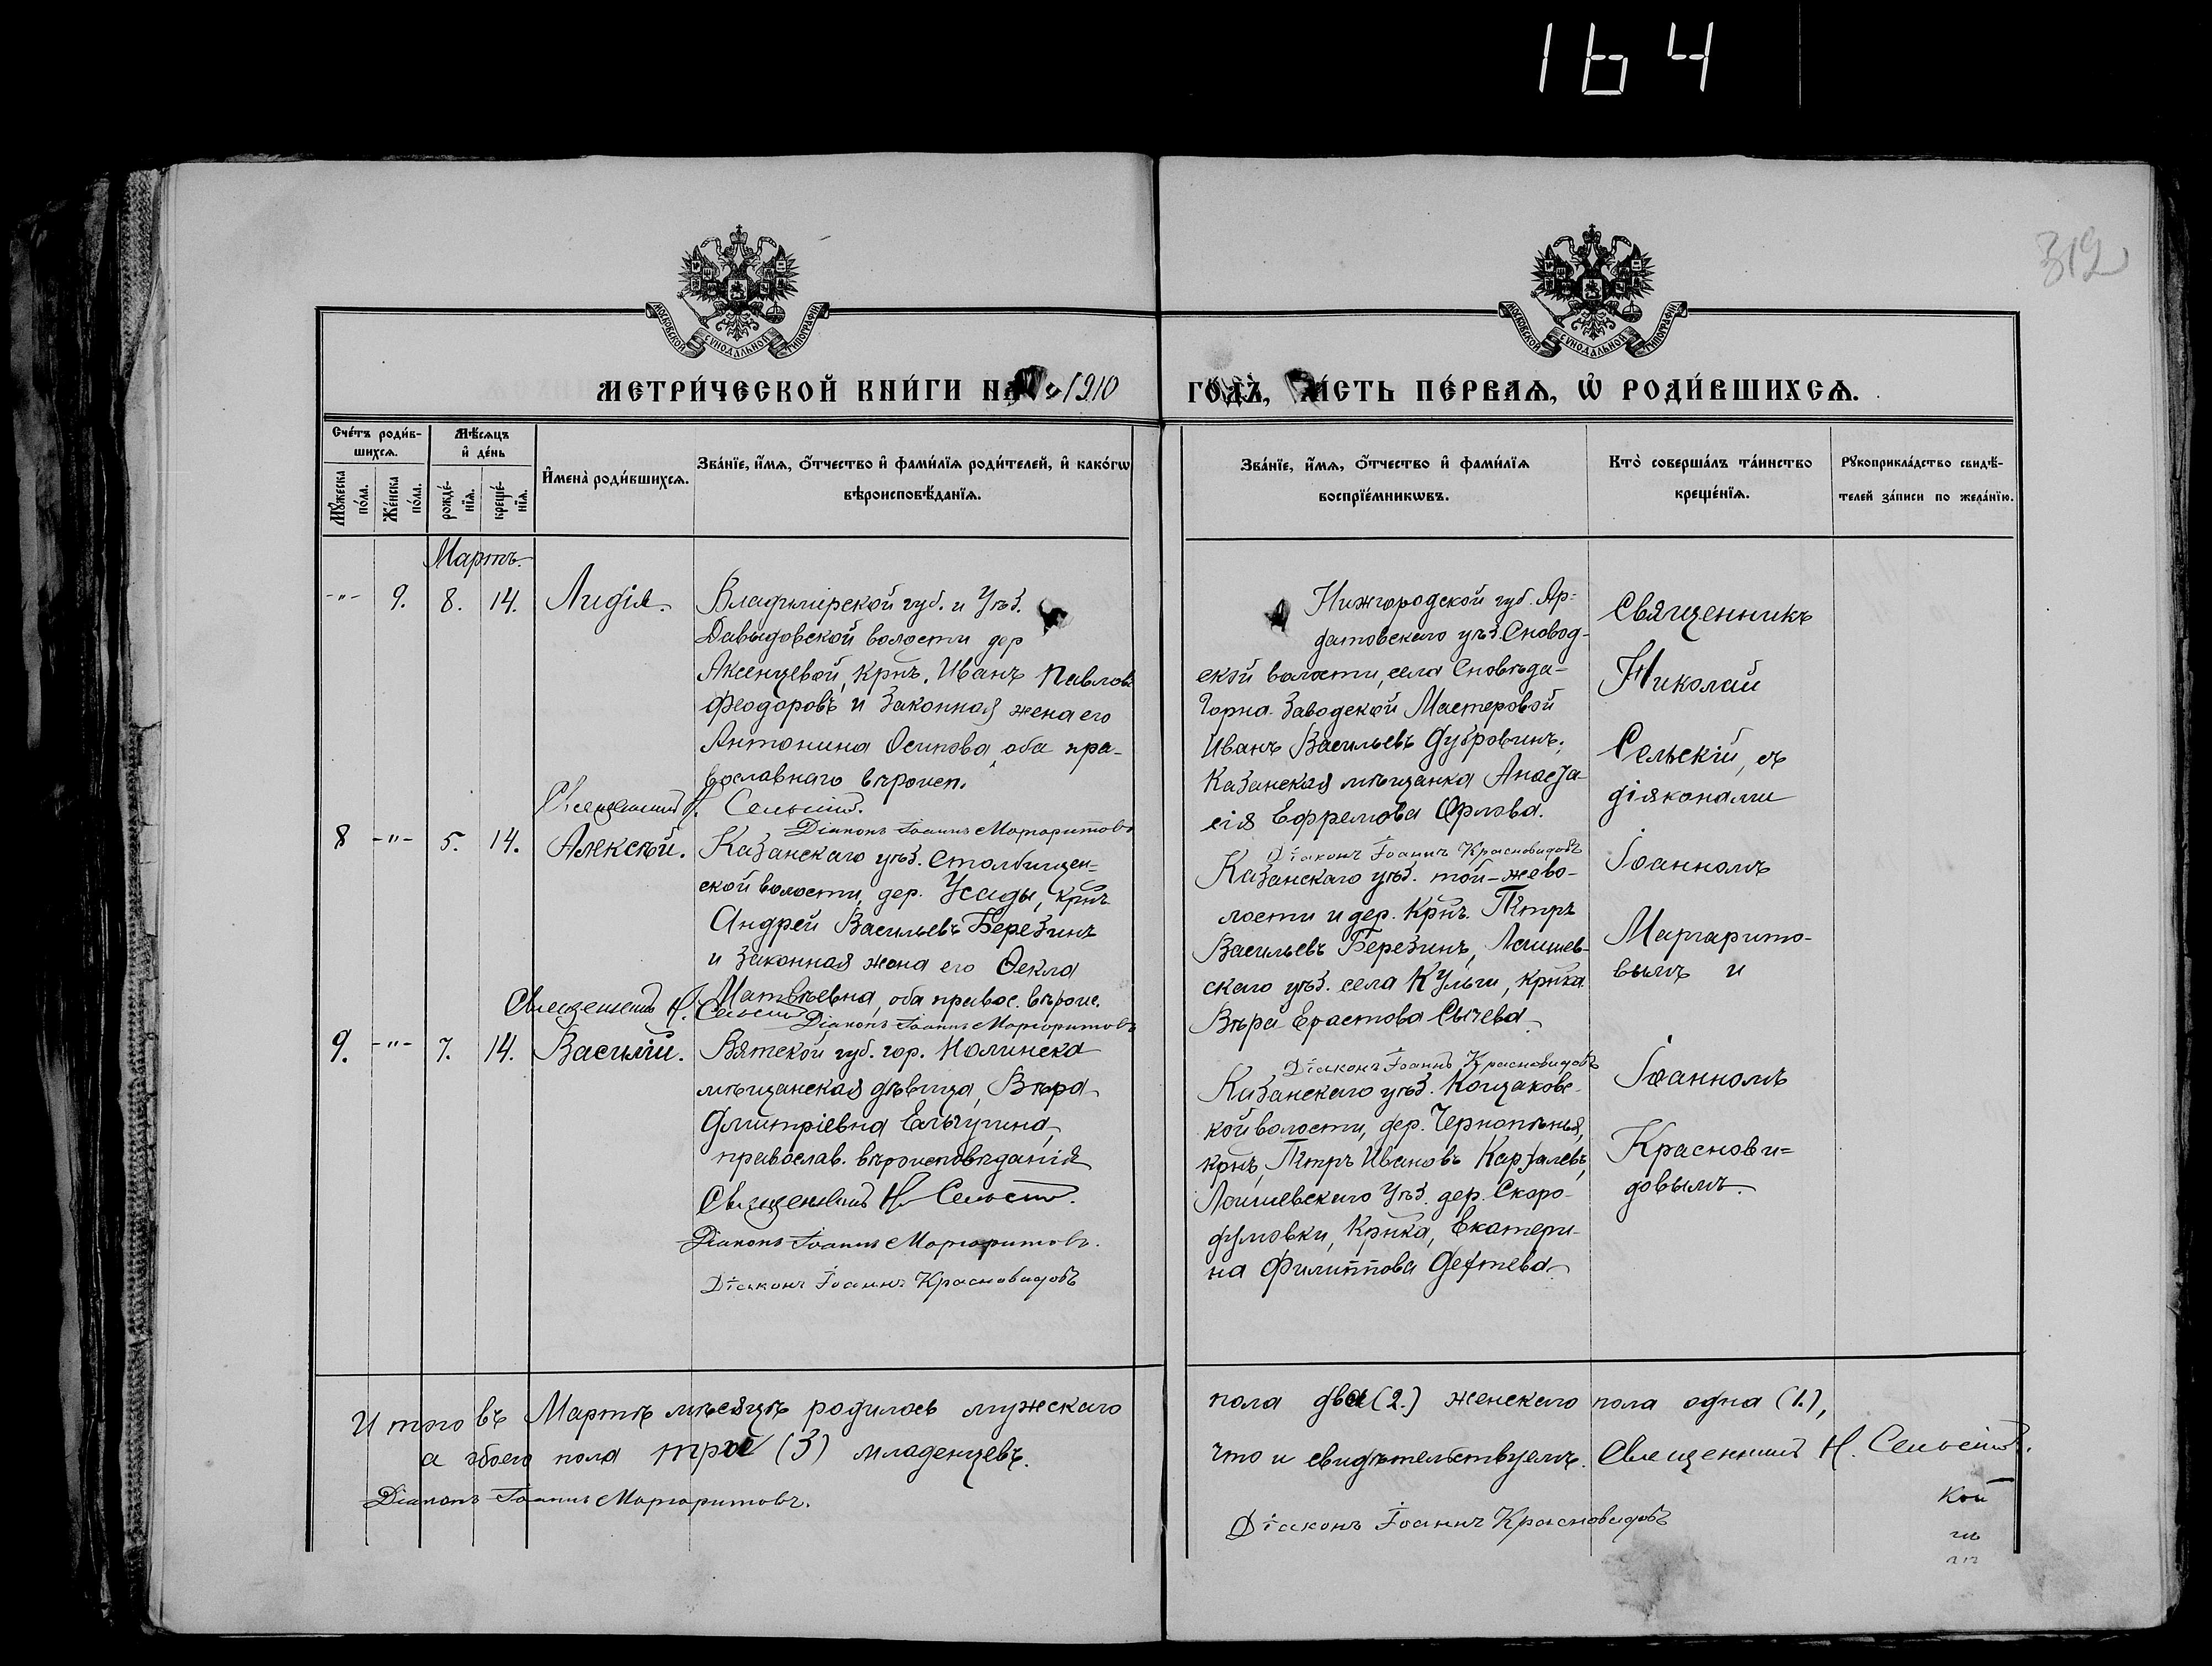 164
312
МОСКОВСКОЙ СѴНОДАЛЬНОЙ ТИПОГРАФІИ
МОСКОВСКОЙ СѴНОДАЛЬНОЙ ТИПОГРАФІИ
МЕТРИ́ЧЕСКОЙ КНИ́ГИ НА 1910
ГОДЪ, ЧА́СТЬ ПЕ́РВАѦ, Ѡ҆ РОДИ́ВШИХСѦ.
Сче́тъ роди́в-
шихсѧ.
Мꙋ́жеска по́ла.
Же́нска по́ла.
Мѣ́сѧцъ
и҆ де́нь
рожде́-
нїѧ.
креще́-
нїѧ.
И҆мена̀ роди́вшихсѧ.
Зва́нїе, и҆́мѧ, ѻ҆́тчество и҆ фами́лїѧ роди́телей, и҆ како́гѡ
вѣроисповѣ́данїѧ.
Зва́нїе, и҆́мѧ, ѻ҆́тчество и҆ фами́лїѧ
воспрїе́мникѡвъ.
Кто̀ соверша́лъ та́инство
креще́нїѧ.
Рꙋкоприкла́дство свидѣ́-
телей за́писи по жела́нїю.
Мартъ.
-"- 9. 8. 14. Лидія.
Владимірской губ. и Уѣз.
Давыдовской волости дер
Аксенцевой, крнъ. Иванъ Павловъ
Феодоровъ и законная жена его
Антонина Осипова, оба пра-
вославнаго вѣроисп.
Священникъ Н. Сельскій.
Діаконъ Іоаннъ Маргаритовъ
Нижгородской губ. Ар-
датовскаго уѣз. Сновод-
ской волости, села Сновѣда-
Горна. Заводской Мастеровой
Иванъ Васильевъ Дубровинъ;
Казанская мѣщанка Анаста-
сія Ефремова Орлова.
Діаконъ Іоаннъ Красновидовъ
8 -"- 5. 14. Алексѣй.
Казанскаго уѣз. Столбищен-
ской волости, дер. Усады, крнъ
Андрей Васильевъ Березинъ
и законная жена его Ѳекла
Матвѣевна, оба правос. вѣроис.
Священникъ Н. Сельскій
Діаконъ Іоаннъ Маргаритовъ
Казанскаго уѣз. той-же во-
лости и дер. Крнъ. Петръ
Васильевъ Березинъ, Лаишев-
скаго уѣз. села Кульги, крнка
Вѣра Ерастова Сычева
Діаконъ Іоаннъ Красновидовъ
9. -"- 7. 14. Василій.
Вятской губ. гор. Нолинска
мѣщанская дѣвица, Вѣра
Дмитріевна Ельчугина,
православ. вѣроисповѣданія
Священникъ Н. Сельскій.
Діаконъ Іоаннъ Маргаритовъ.
Діаконъ Іоаннъ Красновидовъ
Казанскаго уѣз. Кощаковс-
кой волости, дер. Чернопенья,
крнъ, Петръ Ивановъ
Лаишевскаго Уѣз. дер. Скоро-
думовки, Крнка, Екатери-
на Филиппова
Священникъ
Николай
Сельскій, съ
діяконами
Іоанномъ
Маргарито-
вымъ и
Іоанномъ
Краснови-
довымъ.
Итого въ Мартѣ мѣсяцѣ родилось мужскаго
пола два (2.) женскаго пола одна (1.),
а обоего пола трое (3) младенцевъ.
что и свидѣтельствуемъ. Священникъ Н. Сельскій.
Діаконъ Іоаннъ Маргаритовъ.
Діаконъ Іоаннъ Красновидовъ
кой